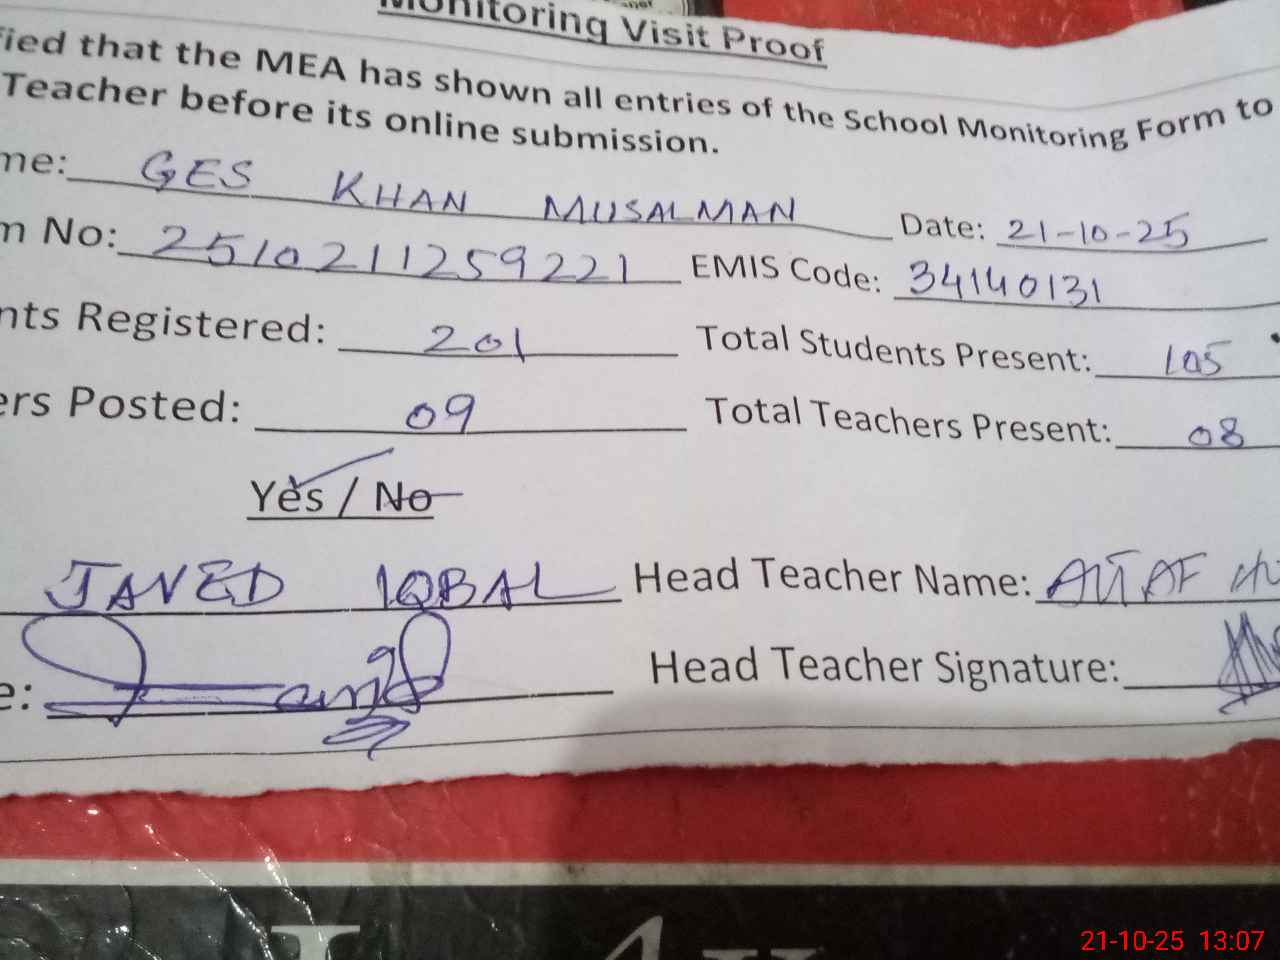 Monitoring Visit Proof
fied that the MEA has shown all entries of the School Monitoring Form to
Teacher before its online submission.
me: GES KHAN MUSALMAN Date: 21-10-25
m No: 2510211259221 EMIS Code: 34140131
nts Registered: 201 Total Students Present: 105
ers Posted: 09 Total Teachers Present: 08
Yes / No
JAVED IQBAL Head Teacher Name: ALTAF
e: Head Teacher Signature:
21-10-25 13:07